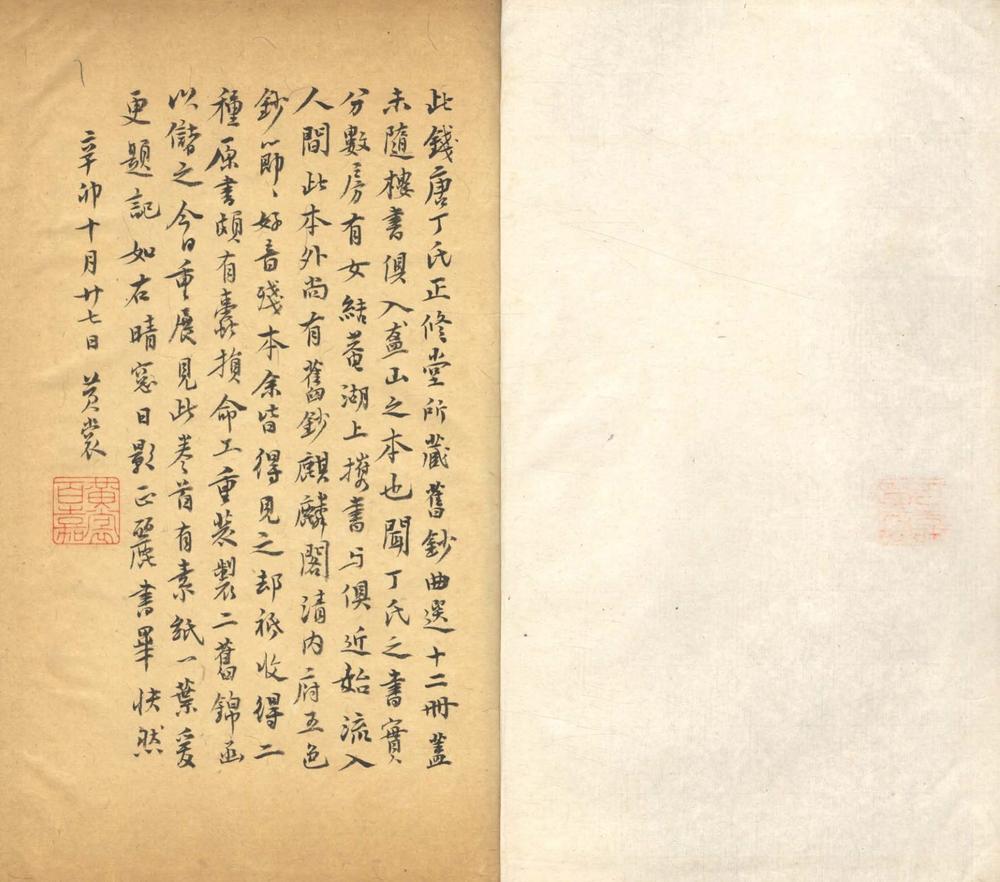 此錢唐丁氏正修堂所藏舊鈔曲選十二冊蓋
未隨樓書俱入盋山之本也聞丁氏之書實
分數房有女結菴湖上攜書与俱近始流入
人間此本外尚有舊鈔麒麟閣清内府五色
鈔節〻好音殘本余皆得見之却衹收得二
種原書頗有蠹損命工重裝製二舊錦函
以儲之今日重展見此卷首有素紙一葉爰
更題記如右晴窓日影正麗書畢快然
辛卯十月廿七日 黃裳